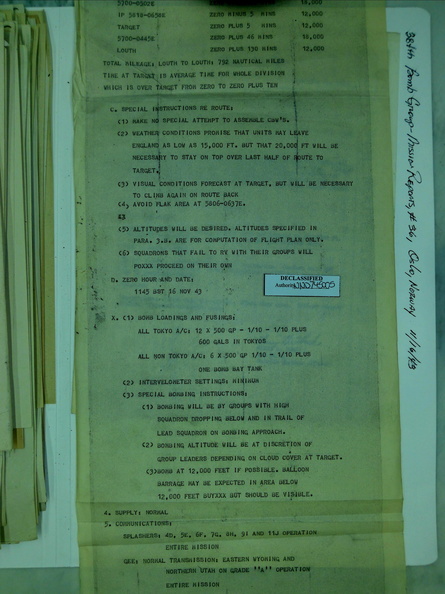 5700-0502E 14,000
IP 5618-0656E ZERO MINUS 5 MINS 12,000
TARGET ZERO PLUS 5 MINS 12,000
5700-0445E ZERO PLUS 46 MINS 18,000
LOUTH ZERO PLUS 130 MINS 12,000
TOTAL MILEAGE: LOUTH TO LOUTH: 792 NAUTICAL MILES
TIME AT TARGET IN AVERAGE TIME FOR WHOLE DIVISION
WHICH IS OVER TARGET FROM ZERO TO ZERO PLUS TEN
C. SPECIAL INSTRUCTIONS RE ROUTE:
(1) MAKE NO SPECIAL ATTEMPT TO ASSEMBLE CBW'S.
(2) WEATHER CONDITIONS PROMISE THAT UNITS MAY LEAVE
ENGLAND AS LOW AS 15,000 FT. BUT THAT 20,000 FT WILL BE
NECESSARY TO STAY ON TOP OVER LAST HALF OF ROUTE TO
TARGET.
(3) VISUAL CONDITIONS FORECAST AT TARGET, BUT WILL BE NECESSARY
TO CLIMB AGAIN ON ROUTE BACK
(4) AVOID FLAK AREA AT 5806-0637E.
(5) ALTITUDES WILL BE DESIRED. ALTITUDES SPECIFIED IN
PARA. 3.B. ARE FOR COMPUTATION OF FLIGHT PLAN ONLY.
(6) SQUADRONS THAT FAIL TO BY WITH THEIR GROUPS WILL
POXXX PROCEED ON THEIR OWN
D. ZERO HOUR AND DATE:
1145 BST 16 NOV 43
DECLASSIFIED
Authority NND745005
X. (1) BOMB LOADINGS AND FUSINGS:
ALL TOKYO A/C: 12 X 500 GP - 1/10 - 1/10 PLUS
600 GALS IN TOKYOS
ALL NON TOKYO A/C: 6 X 500 GP 1/10 - 1/10 PLUS
ONE BOMB BAY TANK
(2) INTERVELOMETER SETTINGS: MINIMUM
(3) SPECIAL BOMBING INSTRUCTIONS:
(1) BOMBING WILL BE BY GROUPS WITH HIGH
SQUADRON DROPPING BELOW AND IN TRAIL OF
LEAD SQUADRON ON BOMBING APPROACH.
(2) BOMBING ALTITUDE WILL BE AT DISCRETION OF
GROUP LEADERS DEPENDING ON CLOUD COVER AT TARGET.
(3)BOMB AT 12,000 FEET IF POSSIBLE. BALLOON
BARRAGE MAY BE EXPECTED IN AREA BELOW
12,000 FEET BUYXXX BUT SHOULD BE VISIBLE.
4. SUPPLY: NORMAL
5. COMMUNICATIONS:
SPLASHERS: 4D, 5E, 6F, 7G, 8H, 9I AND 11J OPERATION
ENTIRE MISSION
GEE: NORMAL TRANSMISSION: EASTERN WYOMING AND
NORTHERN UTAH ON GRADE "A" OPERATION
ENTIRE MISSION
384th Bomb Group-Mission Reports, #36, Oslo, Norway 11/16/43